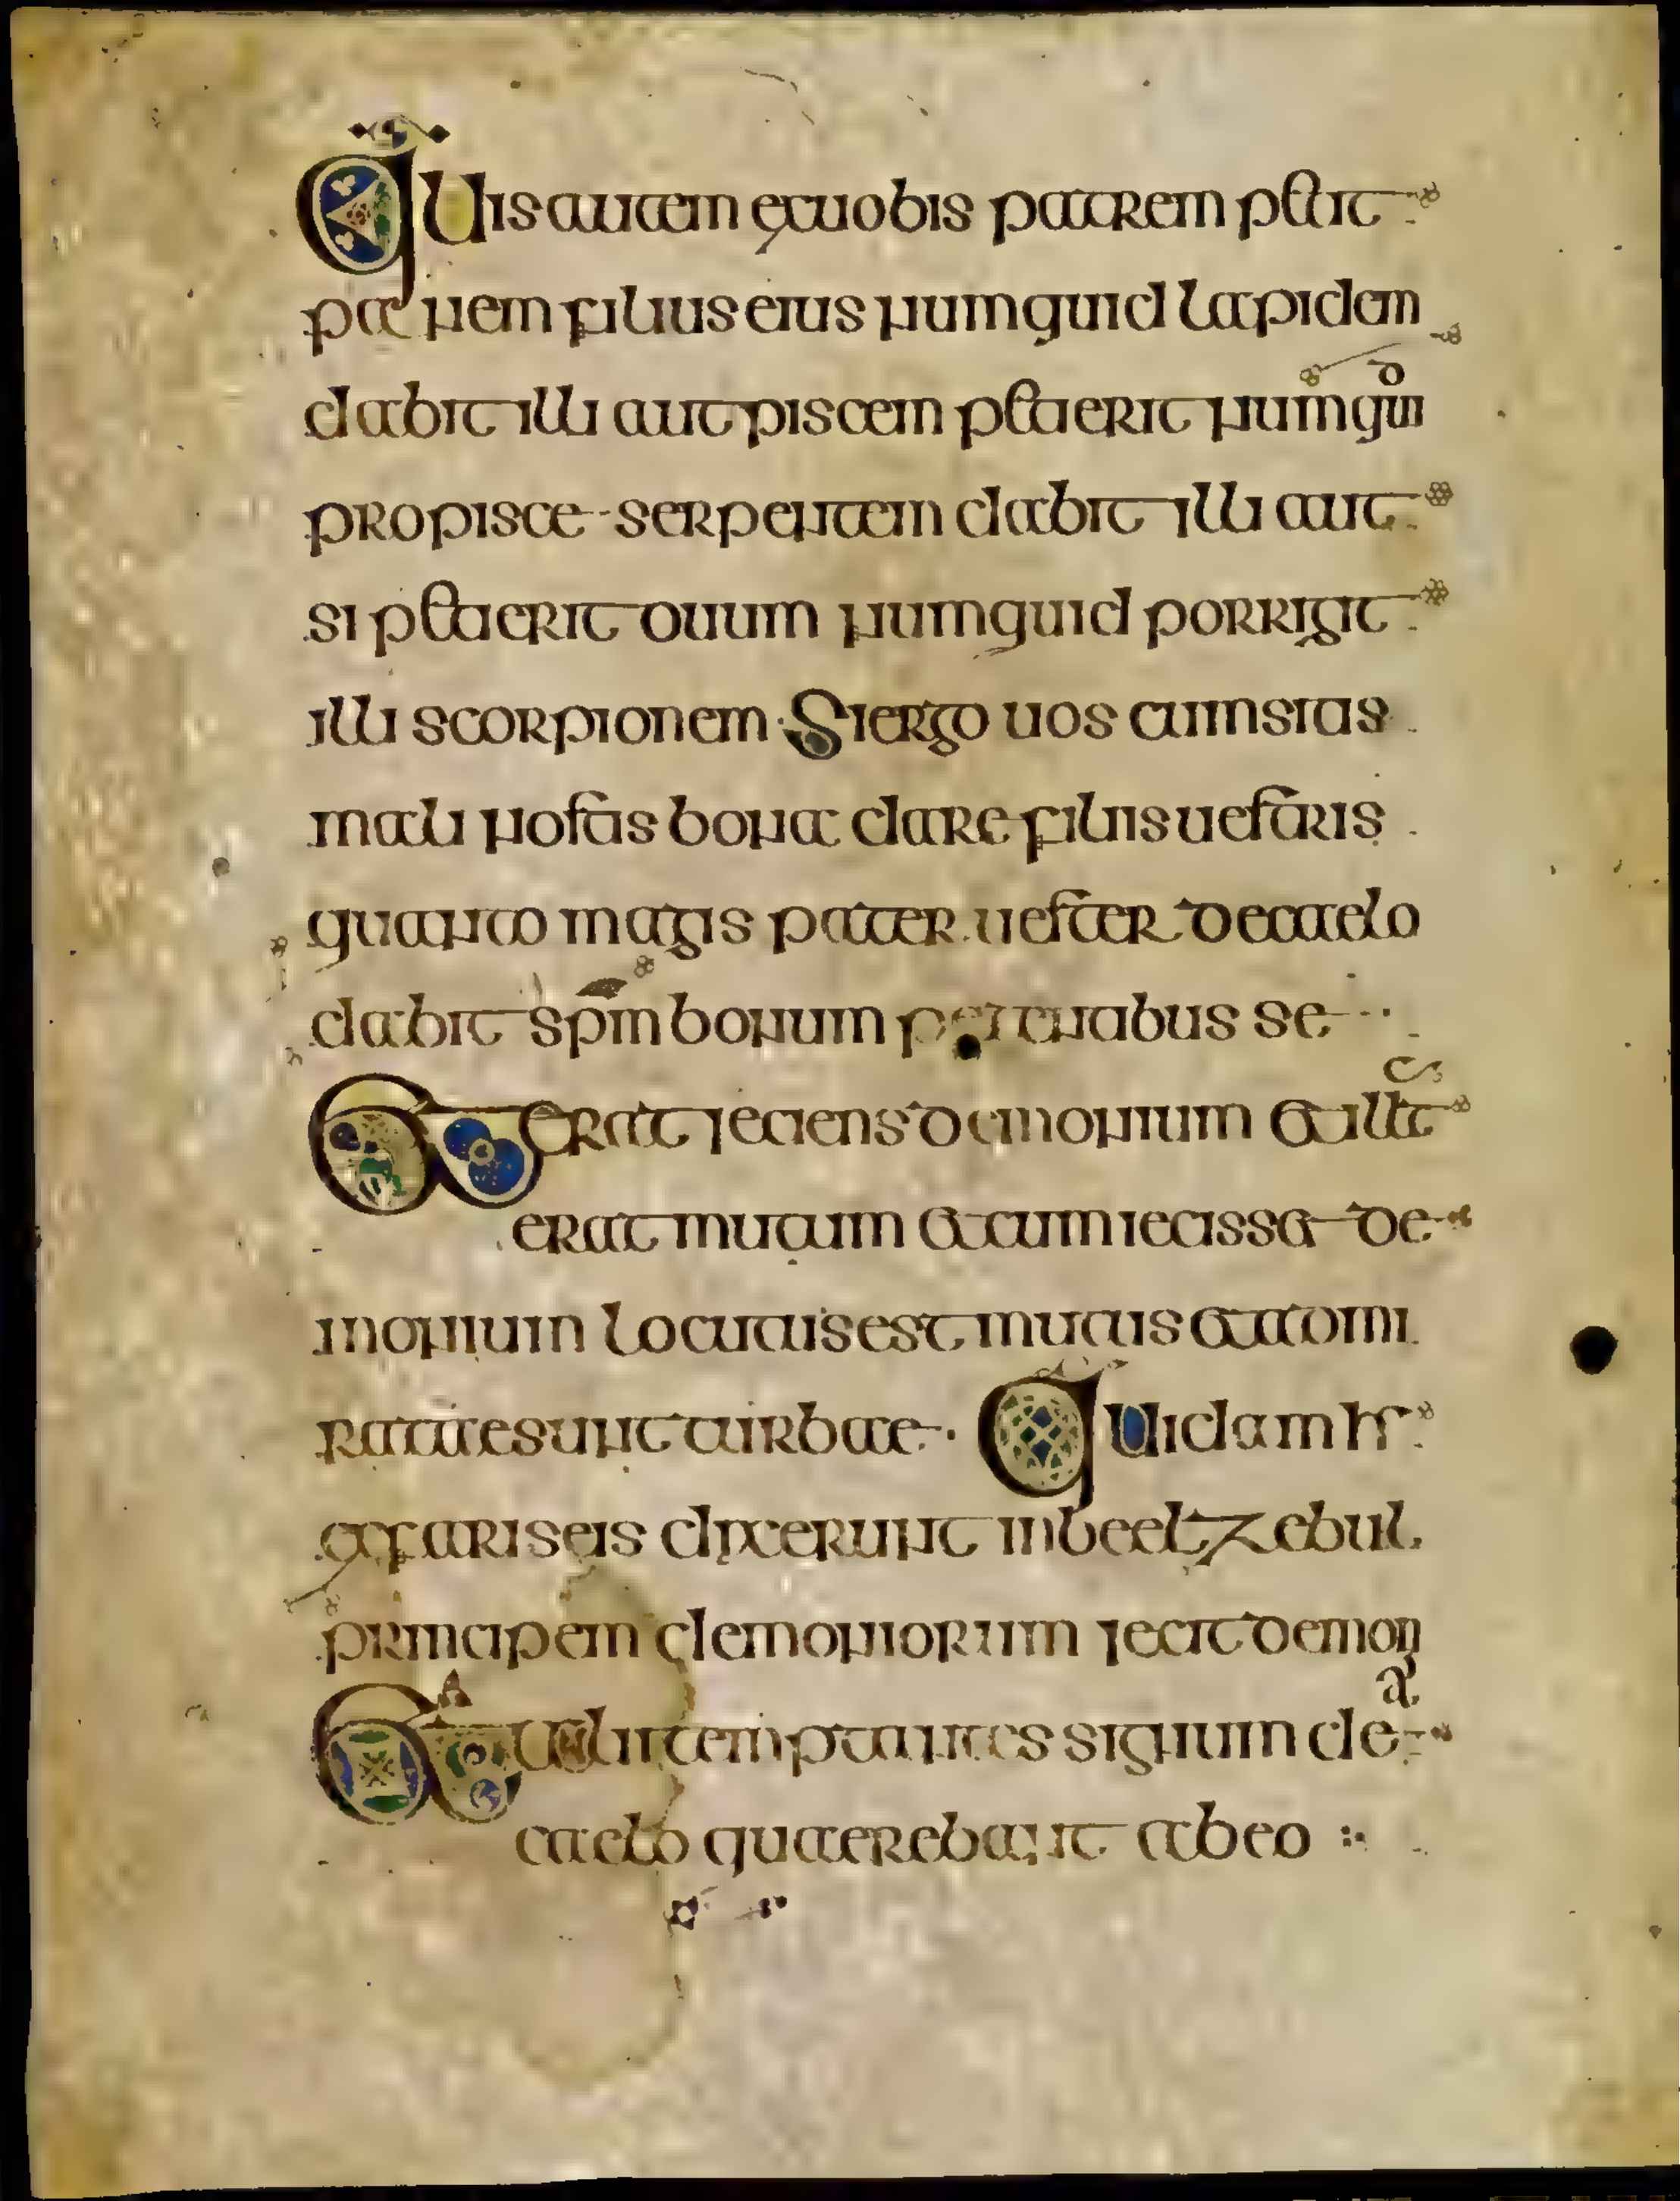 QUis autem exuobis patrem petit
panem filius eius numquid lapidem
dabit illi aut piscem petierit numquid
propisce serpentem dabit illi aut
si petierit ouum numquid porrigit
illi scorpionem Siergo uos cumsitis
mali nostis bona dare filiis uestris
quanto magis pater uester decaelo
dabit spm bonum petentibus se
Et erat ieciens demonium et illut
erat mutum et cum iecisset de
monium locutus est mutus et ammi
rate sunt turbae Quidam hr
exfariseis dixerunt inbeelzebul
principem demoniorum iecit demon
a
Et alii temptantes signum de
caelo quaerebant abeo